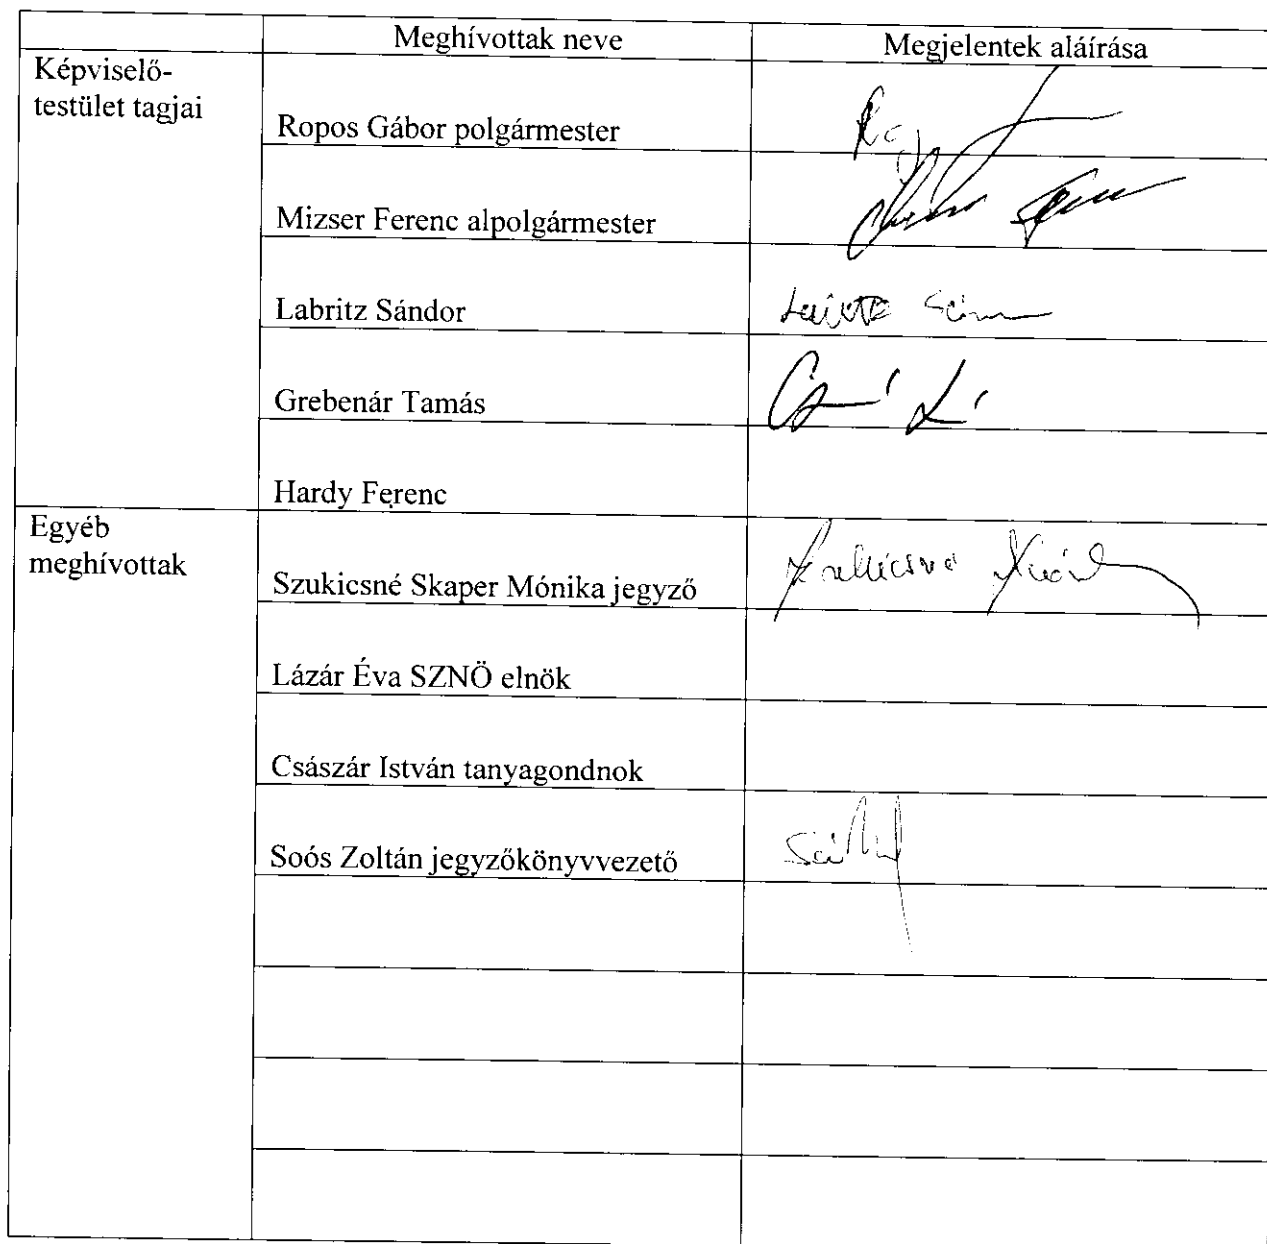 Meghívottak neve
Megjelentek aláírása
Képviselő-
testület tagjai
Ropos Gábor polgármester
Mizser Ferenc alpolgármester
Labritz Sándor
Grebenár Tamás
Hardy Ferenc
Egyéb
meghívottak
Szukicsné Skaper Mónika jegyző
Lázár Éva SZNÖ elnök
Császár István tanyagondnok
Soós Zoltán jegyzőkönyvvezető